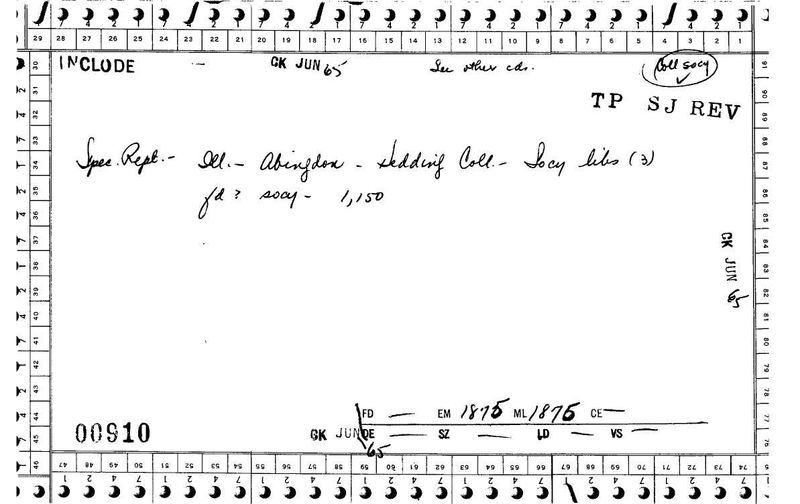 29 28 27 26 25 24 23 22 21 20 19 18 17 16 15 14 13 12 11 10 9 8 7 6 5 4 3 2 1
INCLODE — CK JUN 65 See other cds. Coll socy ✓
TP SJ REV
Spec. Rept. - Ill. - Abingdon - Hedding Coll. - Socy libs (3)
fd ? socy - 1,150
CK JUN 65
FD — EM 1875 ML 1875 CE —
00910 CK JUN 65 QE — SZ — LD — VS —
30 31 32 33 34 35 36 37 38 39 40 41 42 43 44 45 46
47 48 49 50 51 52 53 54 55 56 57 58 59 60 61 62 63 64 65 66 67 68 69 70 71 72 73 74